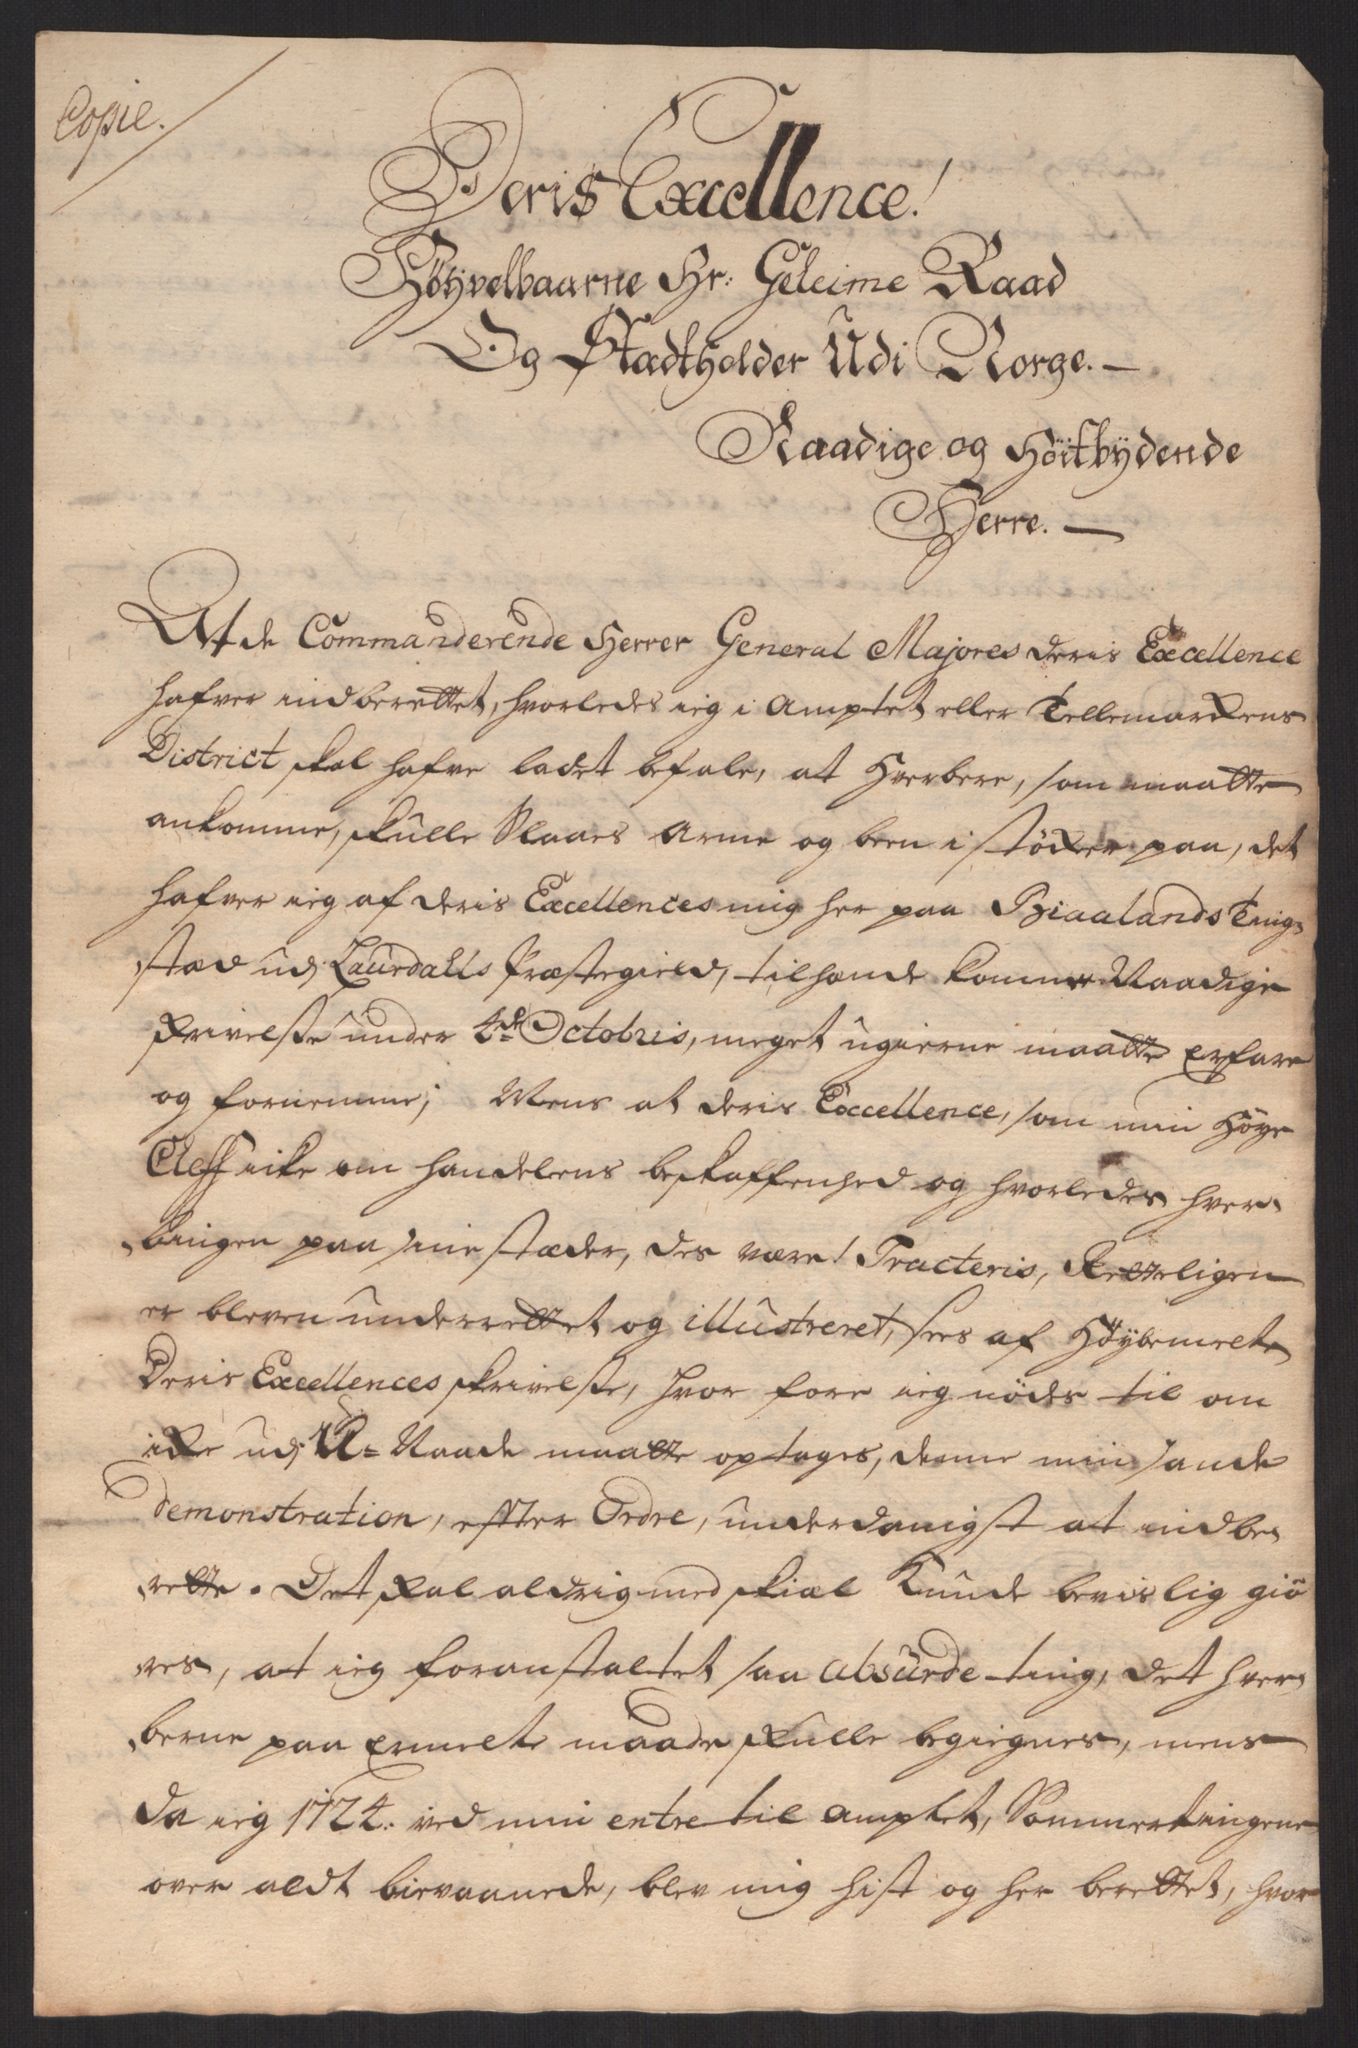 Copie.
Deris Excellence!
Höÿvelbaarne Hr: Geheime Raad
Og Stadtholder Udi Norge. —
Naadige og Höitbÿdende
Herre. —
At de Commanderende Herrer General Majores deris Excellence
hafver indberettet, hvorledes ieg i Amptet eller Tellemarkens
District skal hafve ladet befale, at Hverbere, som maatte
ankomme, skulle Slaaes Arme og been i støcker paa, det
hafver ieg af deris Excellences mig her paa Biaalands Ting„
„stæd udj Laurdalls Præstegield, tilhænde komne Naadige
skrivelsse under 4de Octobris, meget ugierne maatte erfare
og fornemme; Mens at deris Excellence, som min Höye
Cheff icke om handelens beskaffenhed og hvorledes hver„
„bingen paa sine stæder, des være! Tracteris, Retteligen
er bleven underrettet og illustreret, sees af Höÿbemelte
Deris Excellences skrivelsse, hvor fore ieg nødes til om
icke udj U-Naade maatte optages, denne min sande
demonstration, efter Ordre, underdanigst at indbe„
„rette. Det skal aldrig med skiæl Kunde bevislig giö
„res, at ieg foranstaltet saa absurde ting, det hver„
„berne paa ermelte maade skulle begiegnes, mens
da ieg 1724. ved min entre til amptet, Sommertingene
over aldt bievaanede, blev mig hist og her berettet, hvor